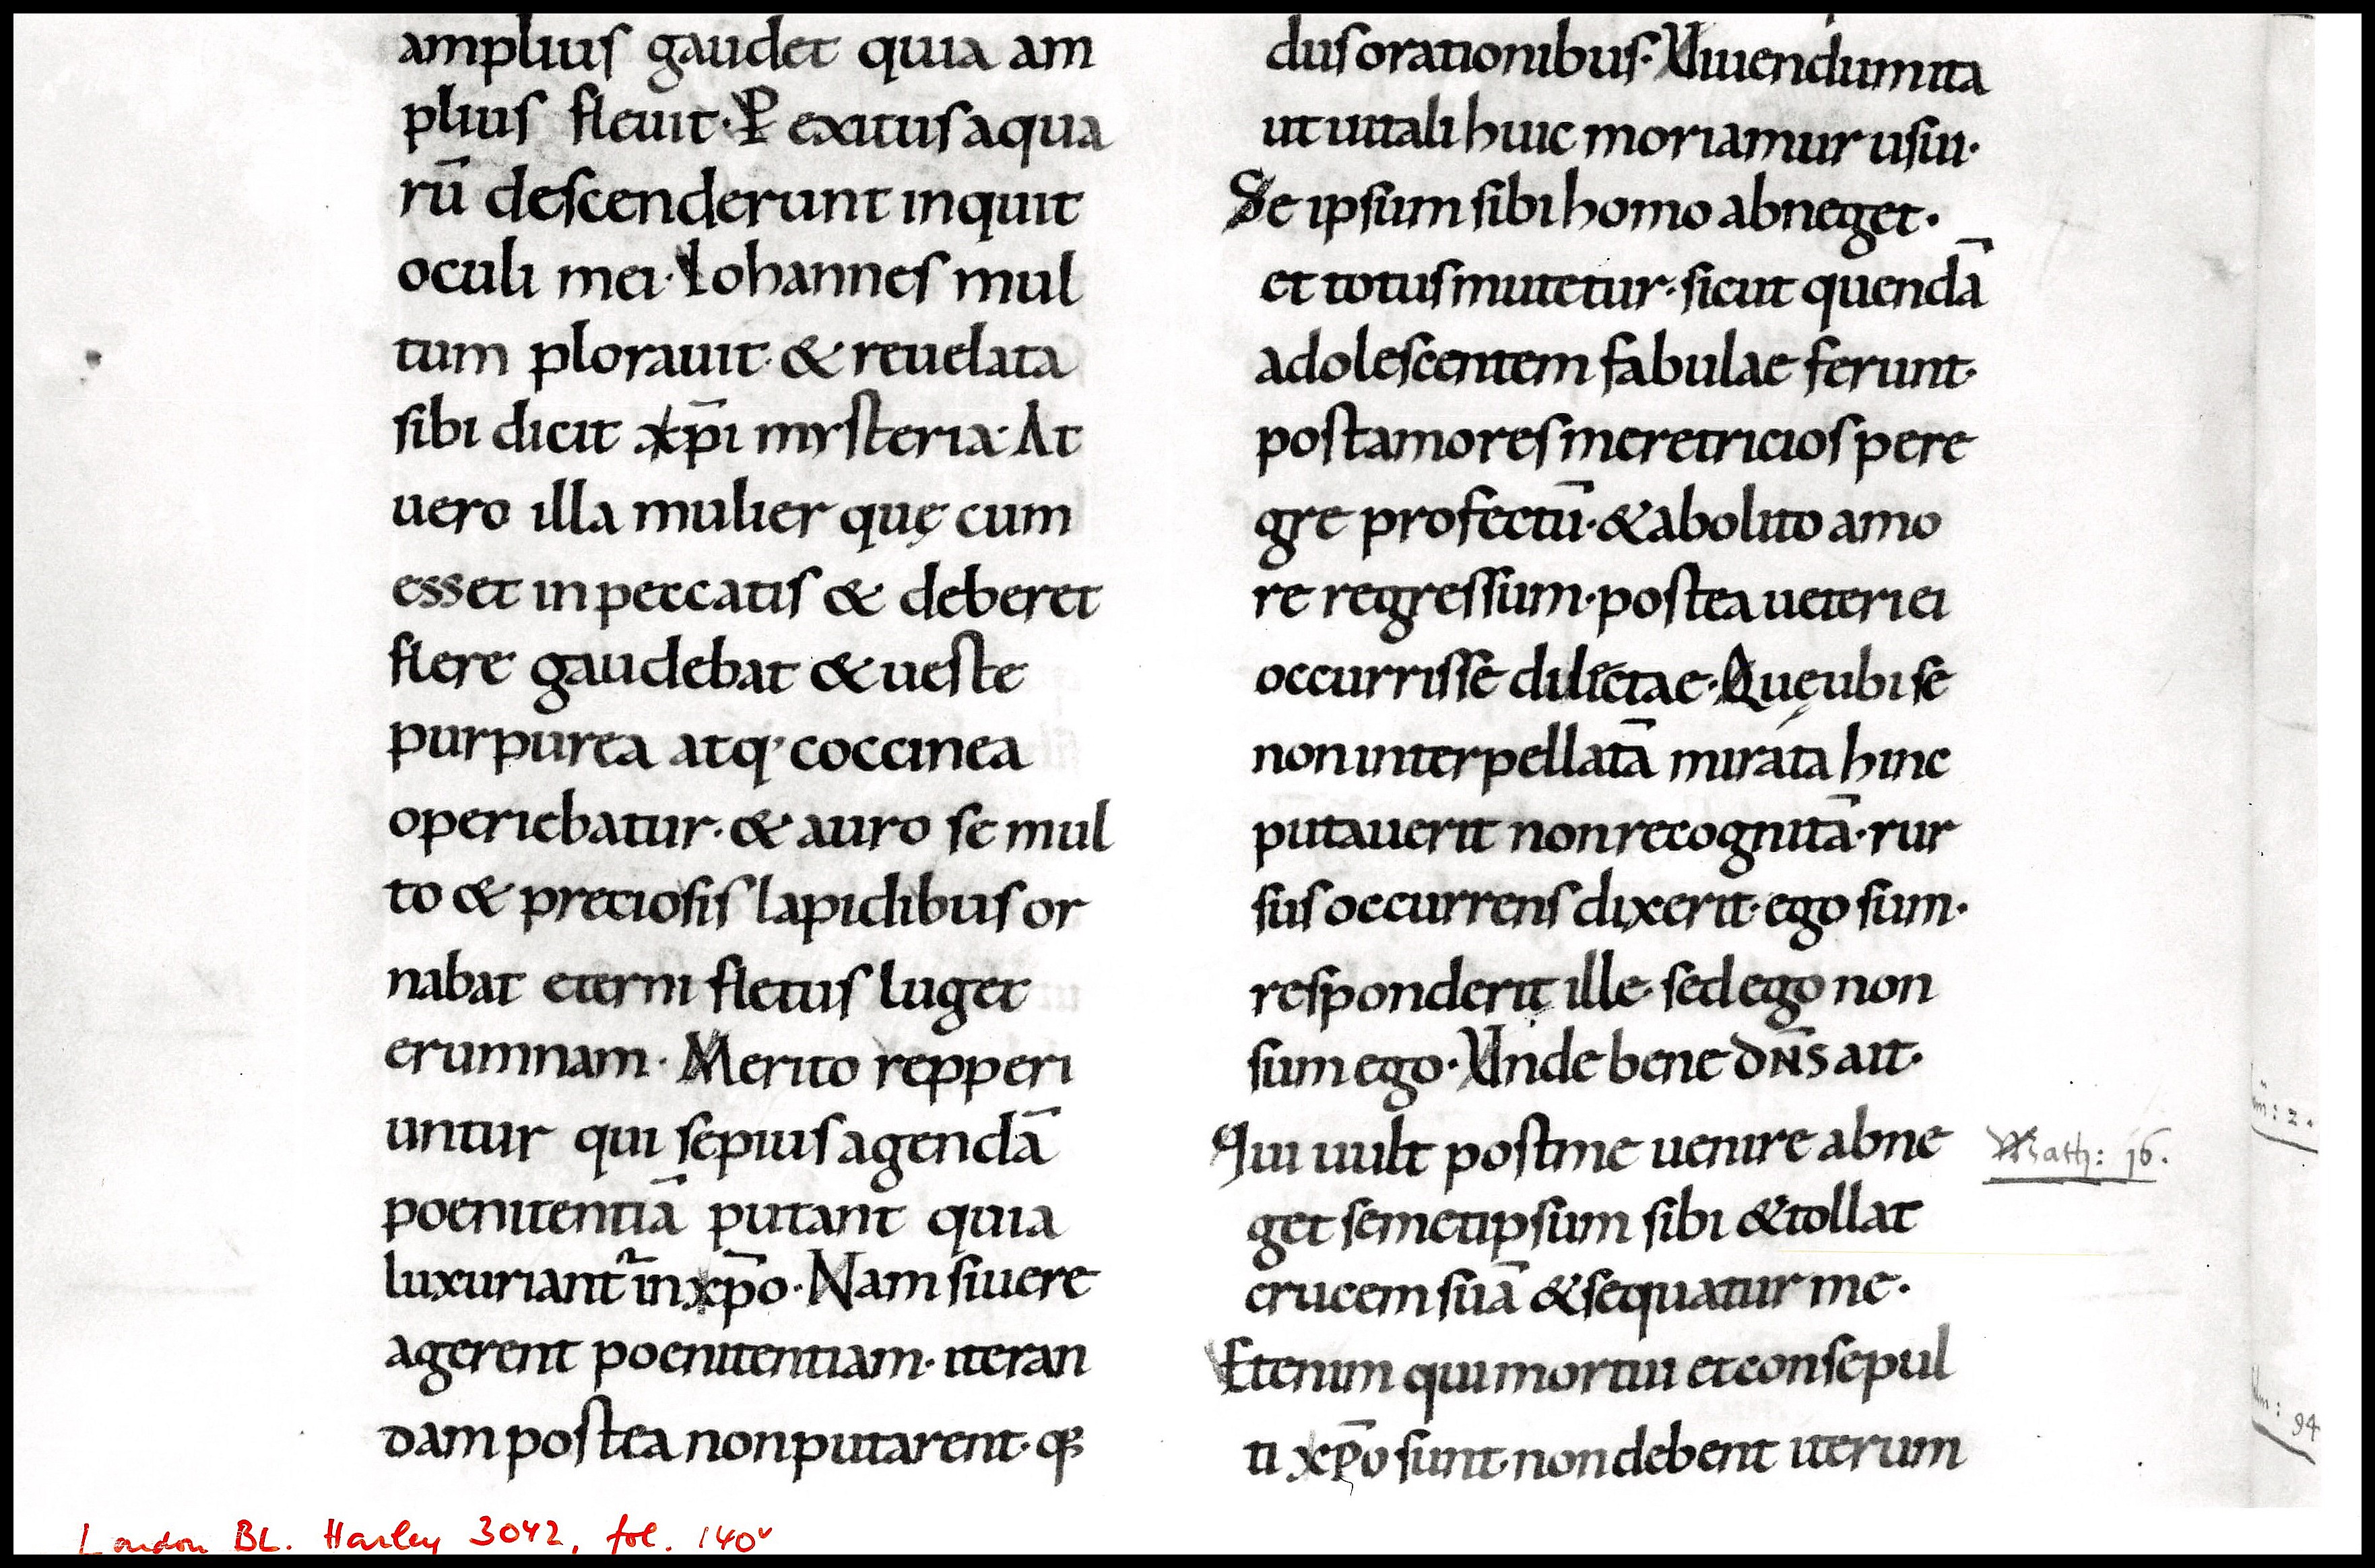 amplius gaudet quia am
plius fleuit· P̄ exitus aqua
rū descenderunt inquit
oculi mei· Iohannes mul
tum plorauit· & reuelata
sibi dicit xp̄i mysteria· At
uero illa mulier quę cum
esset in peccatis & deberet
flere gaudebat & ueste
purpurea atq· coccinea
operiebatur· & auro se mul
to & preciosis lapidibus or
nabat eterni fletus luget
erumnam· Merito repperi
untur qui sepius agendā
poenitentiā putant quia
luxuriant̃ in xp̄o· Nam si uere
agerent poenitentiam· iteran
dam postea non putarent· qꝫ
dus orationibus· Viuendum ita
ut uitali huic moriamur usui·
Se ipsum sibi homo abneget·
et totus mutetur· sicut quendā
adolescentem fabulae ferunt·
post amores meretricios pere
gre profectū· & abolito amo
re regressum· postea ueteri ei
occurrisse dilectae· Quę ubi se
non interpellatā mirata hinc
putauerit non recognitā· rur
sus occurrens dixerit· ego sum·
responderit ille· sed ego non
sum ego· Vnde bene dn̄s ait·
Qui uult post me uenire abne
get semetipsum sibi & tollat
crucem suā & sequatur me·
Etenim qui mortui et consepul
ti xp̄o sunt· non debent iterum
Math: 16.
m: 2.
m: 94
London BL. Harley 3042, fol. 140v